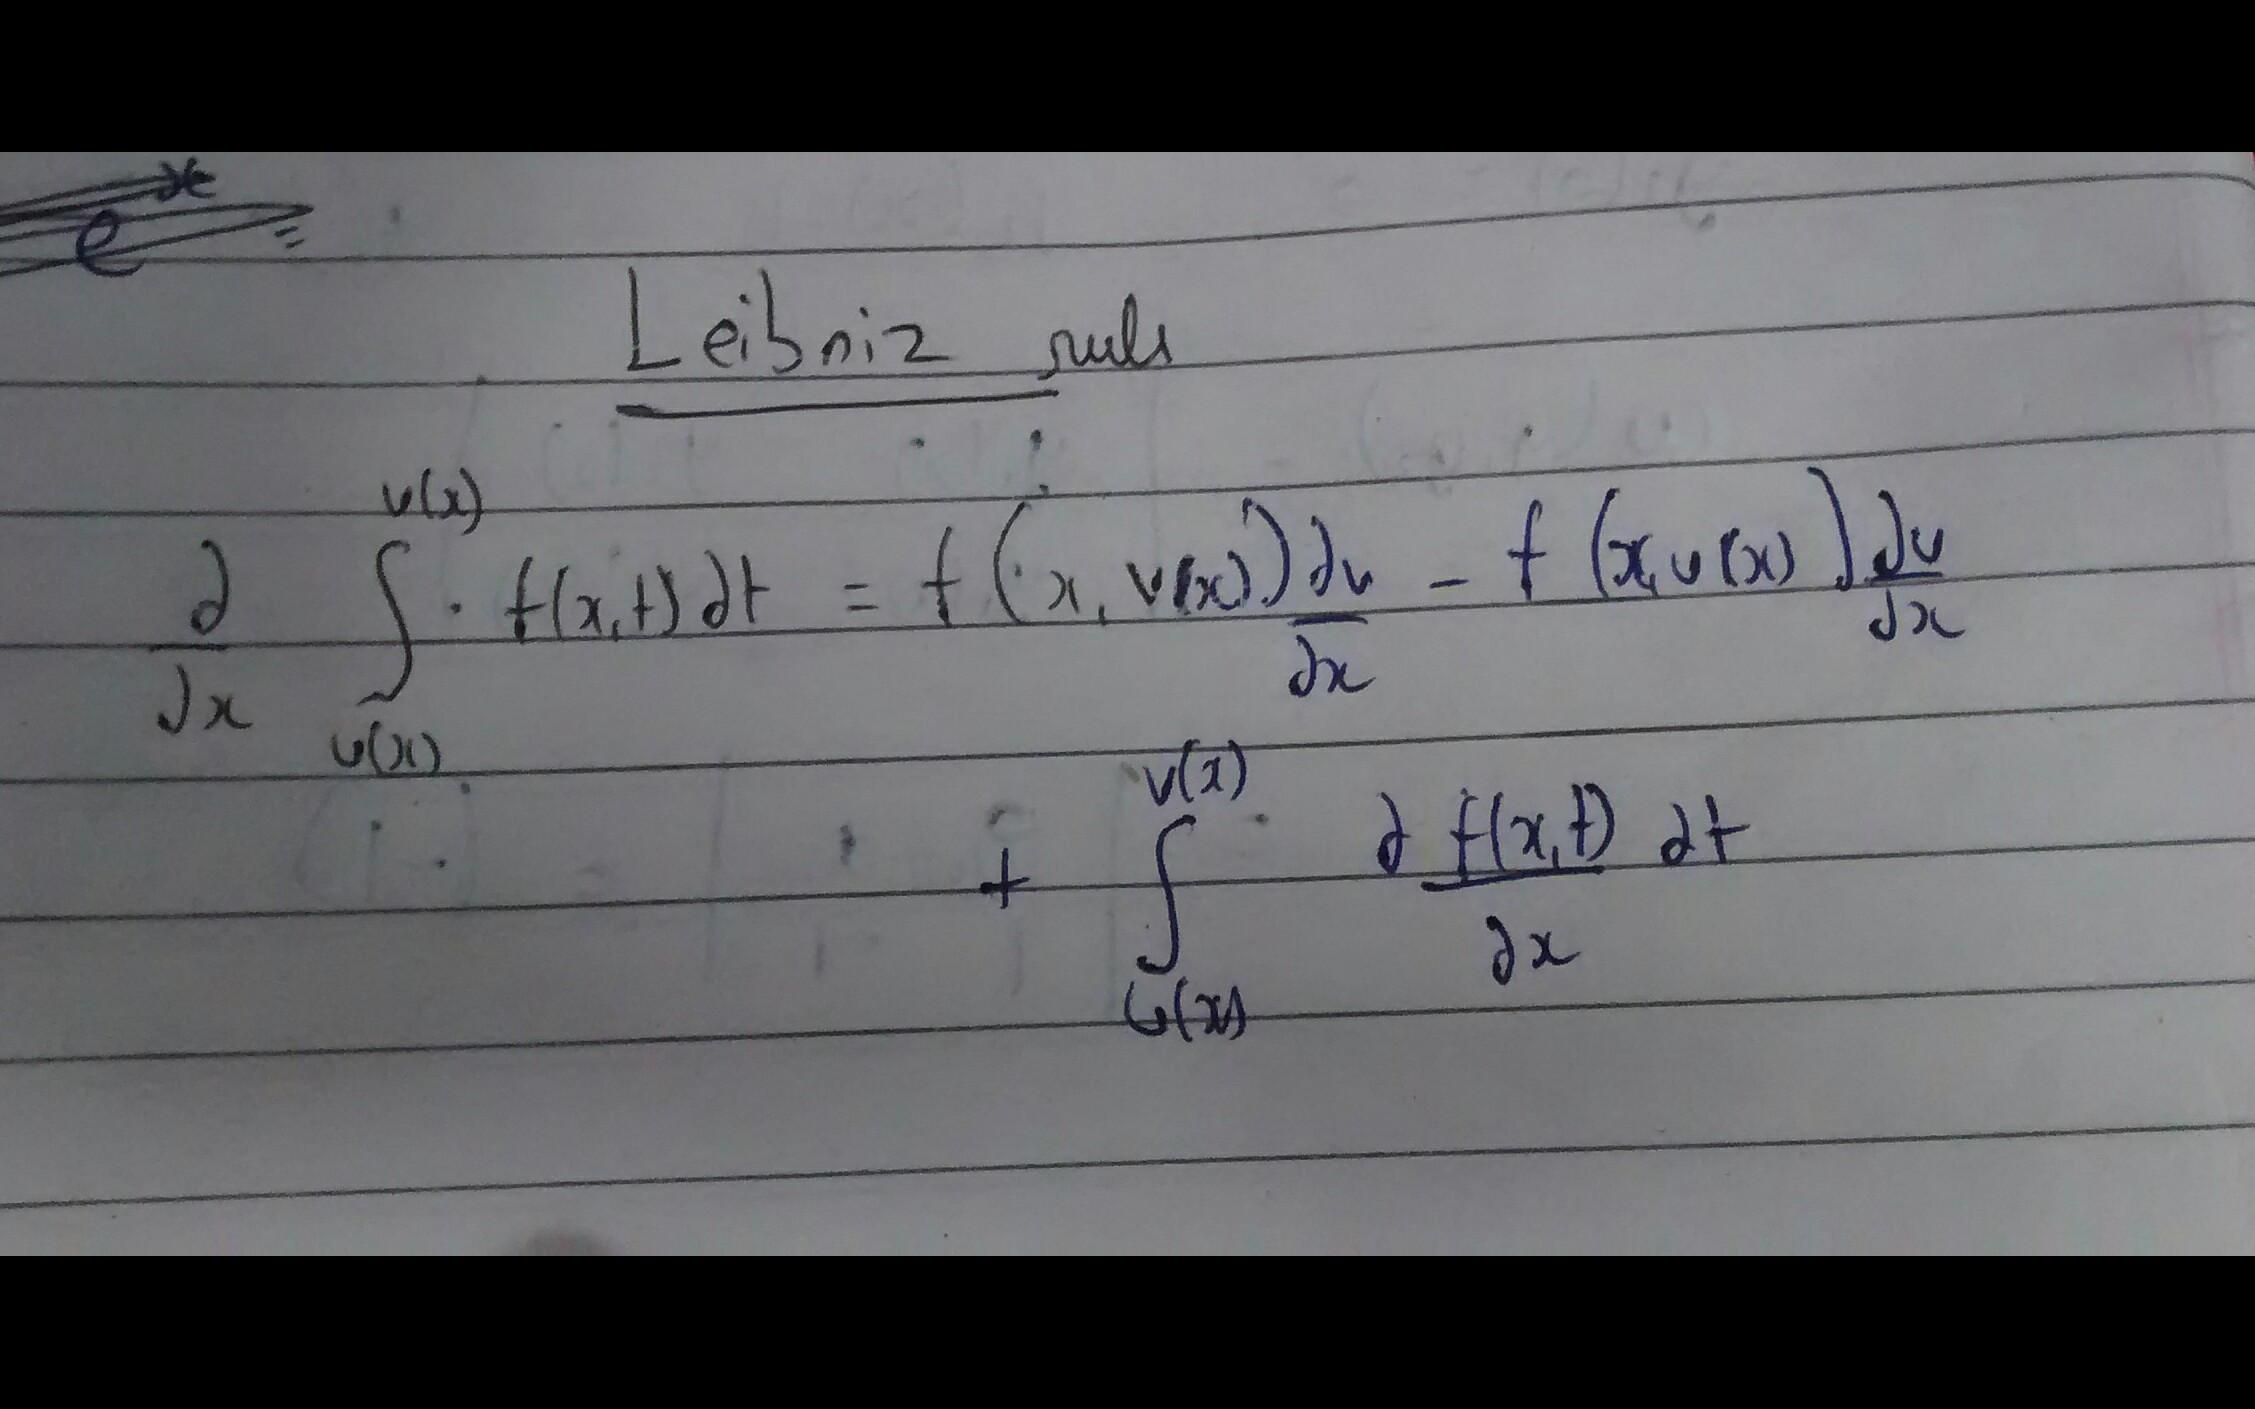 e^x
Leibniz rule
∂/∂x ∫_{u(x)}^{v(x)} f(x,t) dt = f(x, v(x)) ∂v/∂x - f(x, u(x)) ∂u/∂x
+ ∫_{u(x)}^{v(x)} ∂ f(x,t)/∂x dt